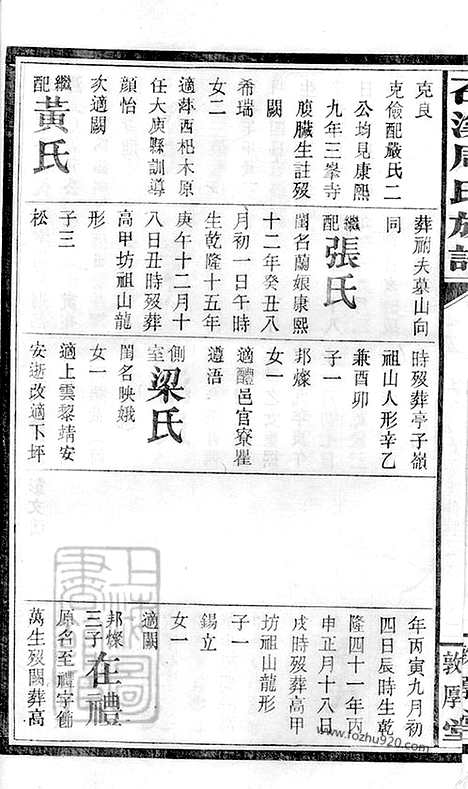 克良
克儉配嚴氏二
公均見康熙
九年三峯寺
腹臟生註歿
闕
希瑞
女二
適萍西杷木原
任大庾縣訓導
顔怡
次適闕
繼配黃氏
葬祔夫墓山向
同
繼配張氏
閨名蘭娘康熙
十二年癸丑八
月初一日午時
生乾隆十五年
庚午十二月十
八日丑時歿葬
高甲坊祖山龍
形
子三
松
時歿葬亭子嶺
祖山人形辛乙
兼酉卯
子一
邦燦
女一
適醴邑官寮瞿
遵浯
側室梁氏
閨名映娥
女一
適上雲黎靖安
安逝改適下坪
年丙寅九月初
四日辰時生乾
隆四十一年丙
申正月十八日
戌時歿葬高甲
坊祖山龍形
子一
錫立
女一
適闕
邦燦三子在禮
原名至禮字飾
萬生歿闕葬高
周氏族譜
敦厚堂
上海圖書
www.fozhu920.com